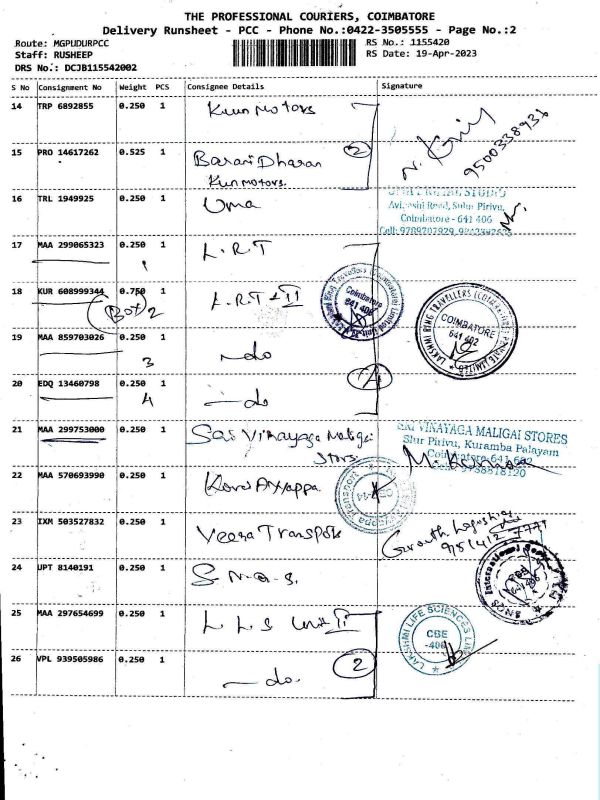 THE PROFESSIONAL COURIERS, COIMBATORE
Delivery Runsheet - PCC - Phone No.:0422-3505555 - Page No.:2
Route: MGPUDURPCC
Staff: RUSHEEP
DRS No.: DCJB115542002
RS No.: 1155420
RS Date: 19-Apr-2023
S No Consignment No Weight PCS Consignee Details Signature
14 TRP 6892855 0.250 1 Kun Motors
N.
9500338936
15 PRO 14617262 0.525 1 Barani Dharan
Kun motors.
2
16 TRL 1949925 0.250 1 Uma
Avinashi Road, Sulur Pirivu,
Coimbatore - 641 406
17 MAA 299065323 0.250 1 L.R.T
1
18 KUR 608999344 0.750 1 L.R.T - II
(Box) 2
Coimbatore
641 406
LAKSHMI RING TRAVELLERS (COIMBATORE) PRIVATE LIMITED
COIMBATORE
641 402
19 MAA 859703026 0.250 1 — do
3
20 EDQ 13460798 0.250 1 — do
4
4
21 MAA 299753000 0.250 1 Sai Vinayaga Maligai
Stors.
SRI VINAYAGA MALIGAI STORES
Slur Pirivu, Kuramba Palayam
22 MAA 570693990 0.250 1
23 IXM 503527832 0.250 1 Veera Transpots
24 UPT 8140191 0.250 1 S N.Q.S.
25 MAA 297654699 0.250 1 L L S Unit II
LAKSHMI LIFE SCIENCES
CBE
-406
26 VPL 939505986 0.250 1 — do.
2